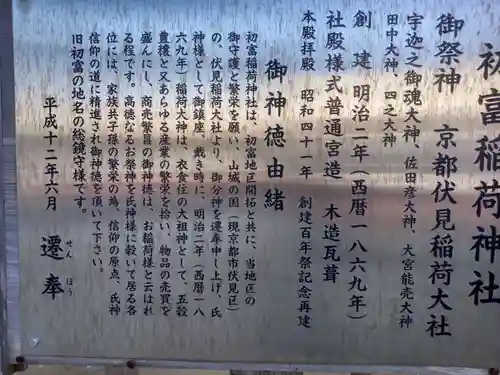 初富稲荷神社
御祭神 京都伏見稲荷大社
宇迦之御魂大神、佐田彦大神、大宮能売大神
田中大神、四之大神
創建 明治二年(西暦一八六九年)
社殿様式普通宮造 木造瓦葺
本殿拝殿 昭和四十一年 創建百年祭記念再建
御神徳由緒
初富稲荷神社は、初富地区開拓と共に、当地区の
御守護と繁栄を願い、山城の国(現京都市伏見区)
の、伏見稲荷大社より、御分神を遷奉申し上げ、氏
神様として御鎮座、裁き時に、明治二年(西暦一八
六九年)稲荷大神は、衣食住の大祖神として、五穀
豊穣と又あらゆる産業の繁栄を拾い、物品の売買を
盛んにし、商売繁昌の御神徳は、お稲荷様と云はれ
る程です。高徳なるお祭神を氏神様に殺いて居る各
位には、家族共子孫の繁栄の為、信仰の原点、氏神
信仰の道に精進され御神徳を頂いて下さい。
旧初富の地名の総鏡守様です。
平成十二年六月 遷奉
せん ほう